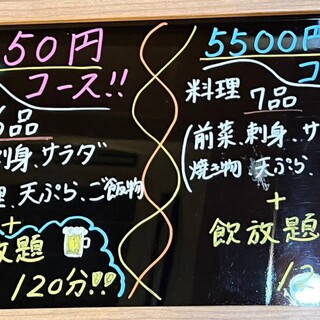 50円
コース!!
品
刺身、サラダ
理、天ぷら、ご飯物
+
放題
120分!!
5500円
コ
料理 7品
(前菜、刺身、サ
焼き物、天ぷら、
+
飲放題
12